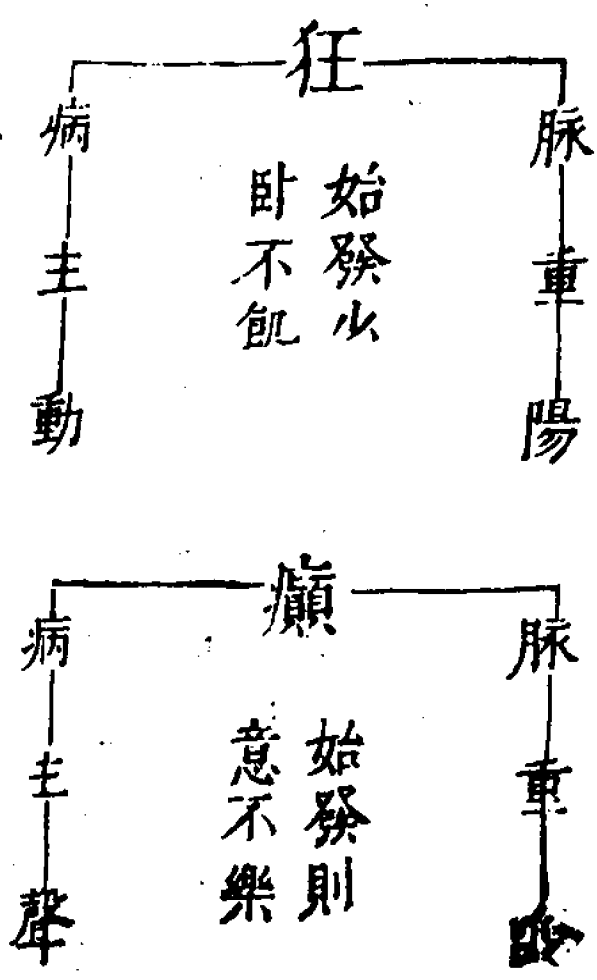 狂
脉重陽
始發少
卧不飢
病主動
癲
脉重
始發則
意不樂
病主聲